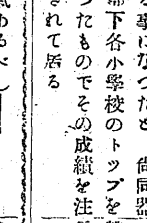 る事になつたと　尚同器
帶下各小學校のトップを
つたものでその成績を注
されて居る
あるべし